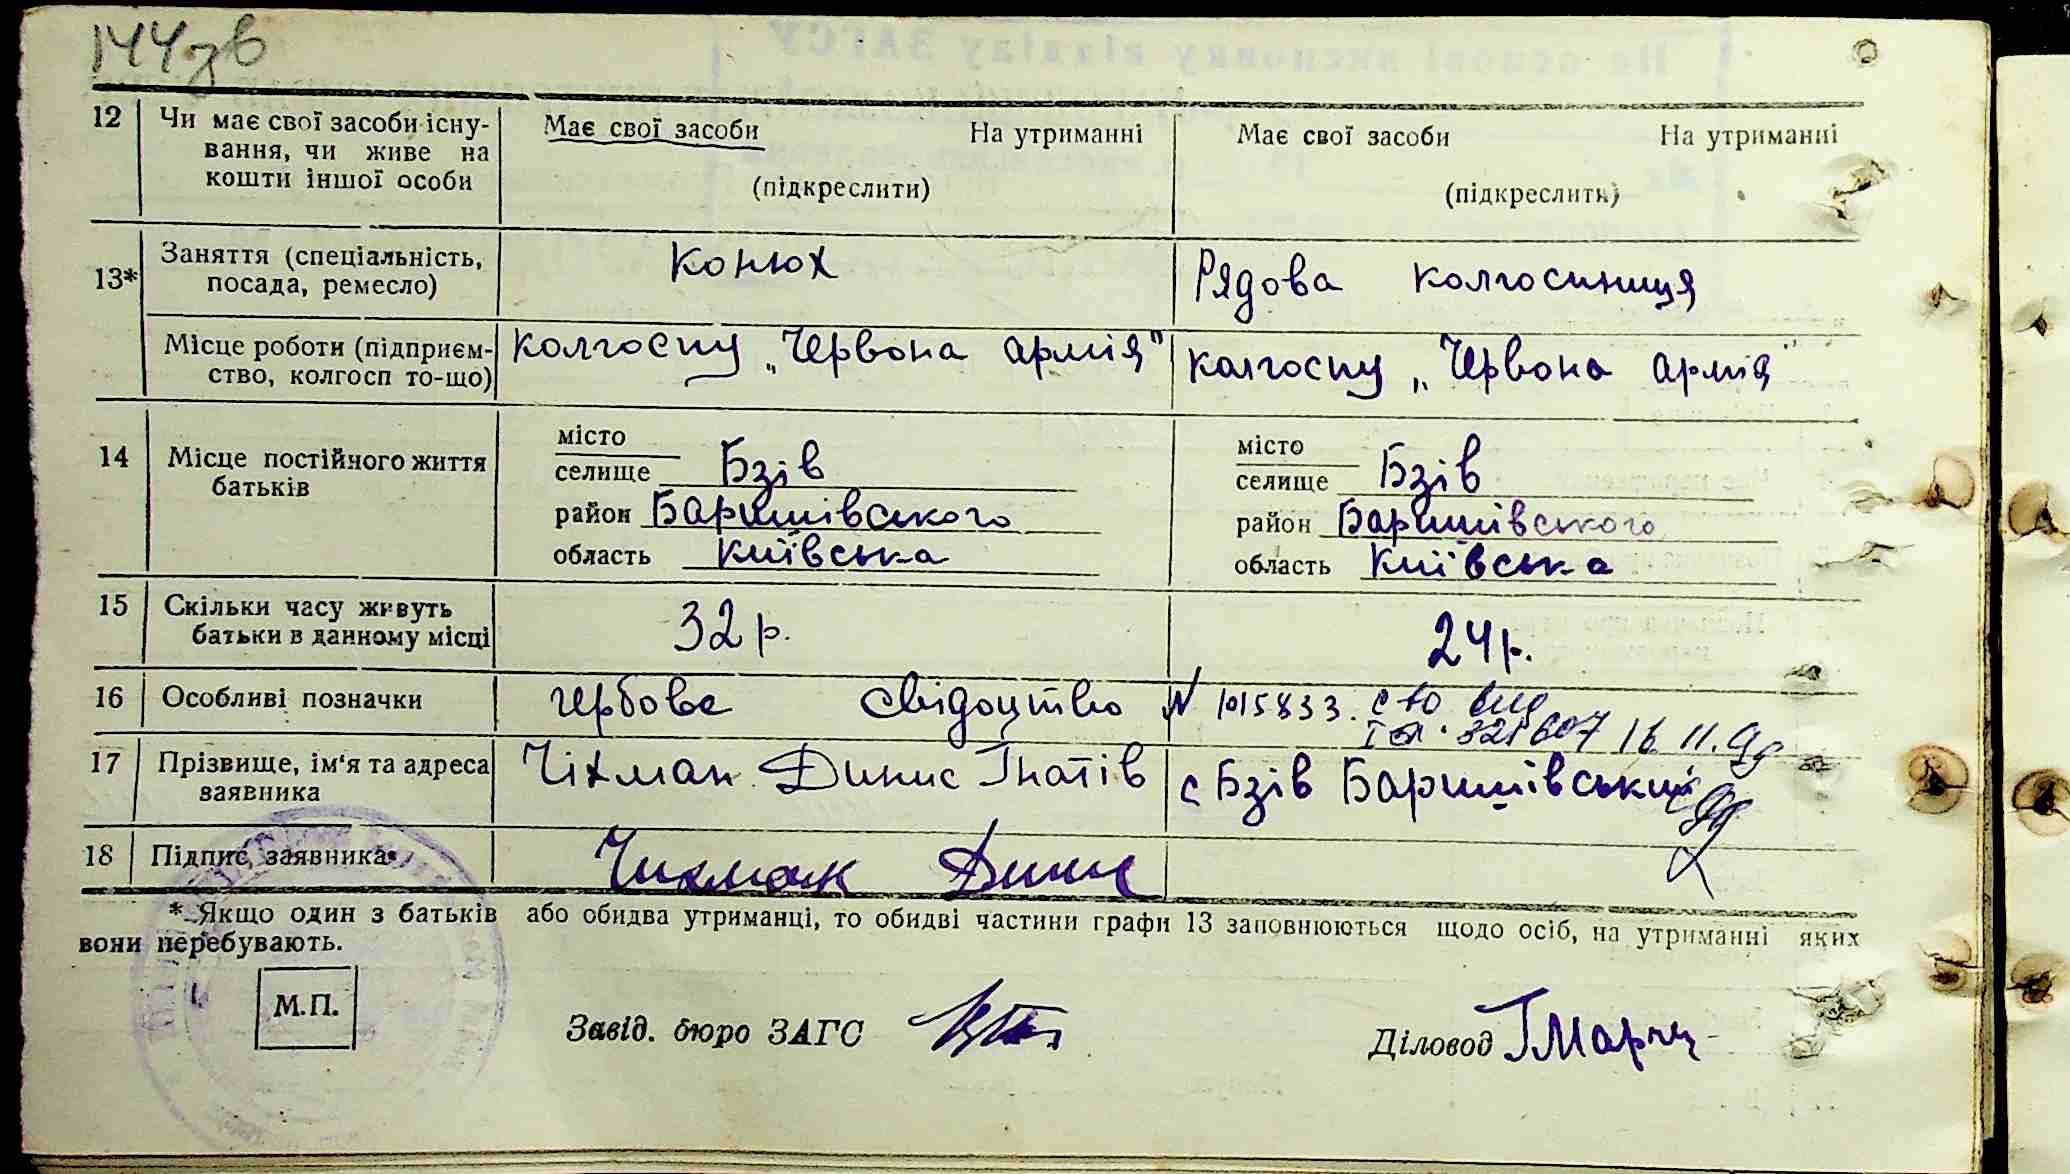 144зв
12 Чи має свої засоби існу- Має свої засоби На утриманні Має свої засоби На утриманні
вання, чи живе на
кошти іншої особи (підкреслити) (підкреслити)
13* Заняття (спеціальність, Конюх Рядова колгоспниця
посада, ремесло)
Місце роботи (підприєм- колгоспу „Червона армія" колгоспу „Червона армія"
ство, колгосп то-що)
14 Місце постійного життя місто місто
батьків селище Бзів селище Бзів
район Баришівського район Баришівського
область Київська область Київська
15 Скільки часу живуть 32 р. 24 р.
батьки в данному місці
16 Особливі позначки гербове свідоцтво N 1015833. с-во
321607 16 11.
17 Прізвище, ім'я та адреса Чіхман Динис Гнатів с Бзів Баришівський
заявника
18 Підпис заявника Чихмак Динис
* Якщо один з батьків або обидва утриманці, то обидві частини графи 13 заповнюються щодо осіб, на утриманні яких
вони перебувають.
М.П.
Завід. бюро ЗАГС Діловод